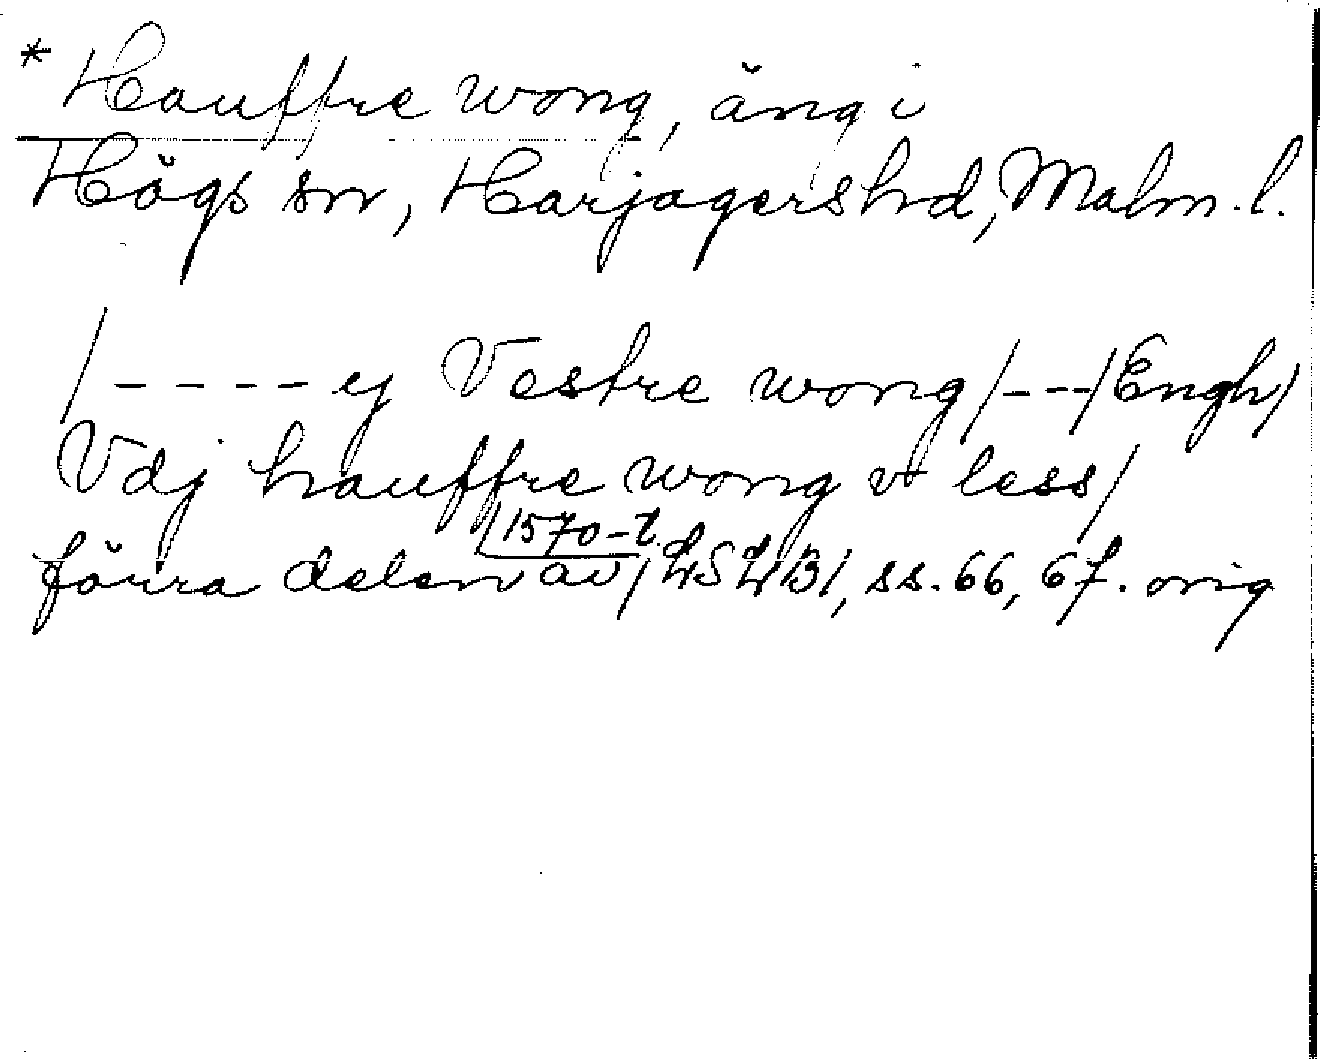 * Hauffre wong, äng i
Högs sn, Harjagers hd, Malm. l.
/- - - - ej Vestre wong /- - -/ Engh /
Vdj hauffre wong vt less /
1570-t.
förra delen av / LSLB /, ss. 66, 67. orig